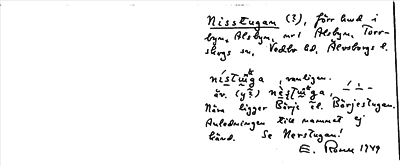 Nisstugan (3), förr hus i
byn, Alsbyn, nr 1 Alsbyn, Torr-
skogs sn, Vedbo hd, Älvsborgs l.
nistuga, vanligen.
äv. (y3) nistuga,
Nära ligger Börje el. Börjestugan.
Anledningen till namnet ej
känd. Se Nerstugan!
E. 1949